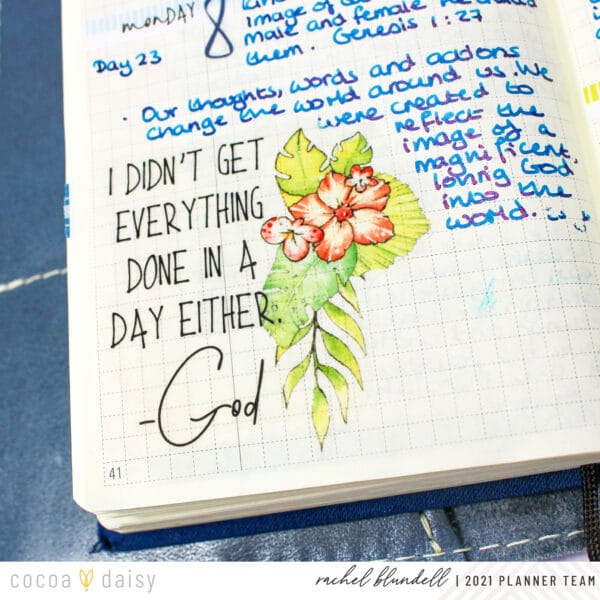 MONDAY 8
image of
male and female he created
them. Genesis 1:27
Day 23
• Our thoughts, words and actions
change the world around us. We
were created to
reflect the
image of a
magnificent,
loving God
into the
world.
I DIDN'T GET
EVERYTHING
DONE IN A
DAY EITHER.
-God
41
cocoa daisy
rachel blundell | 2021 PLANNER TEAM